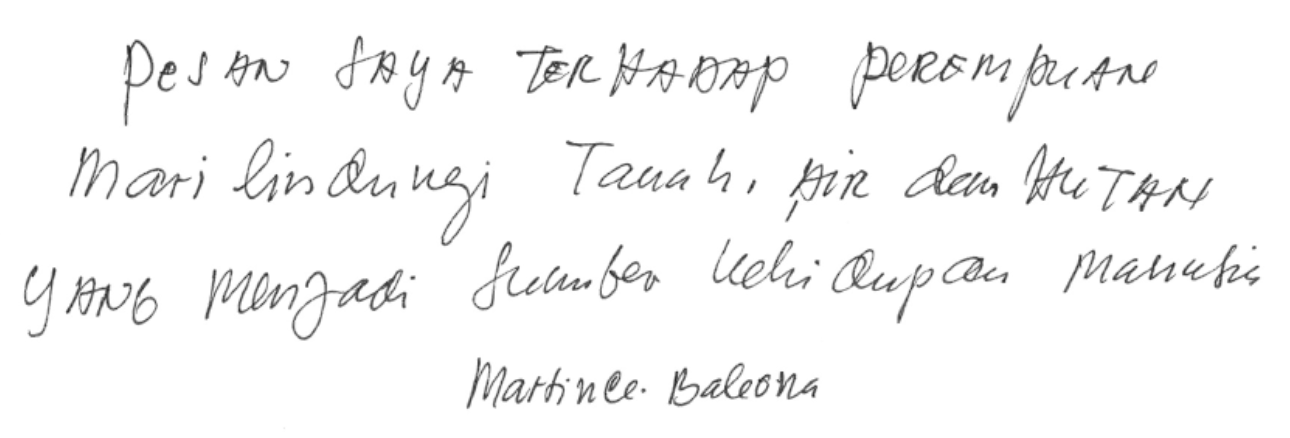 Pesan saya terhadap perempuan
Mari lindungi Tanah, Air dan Hutan
yang menjadi sumber kehidupan manusia
Martince. Baleona